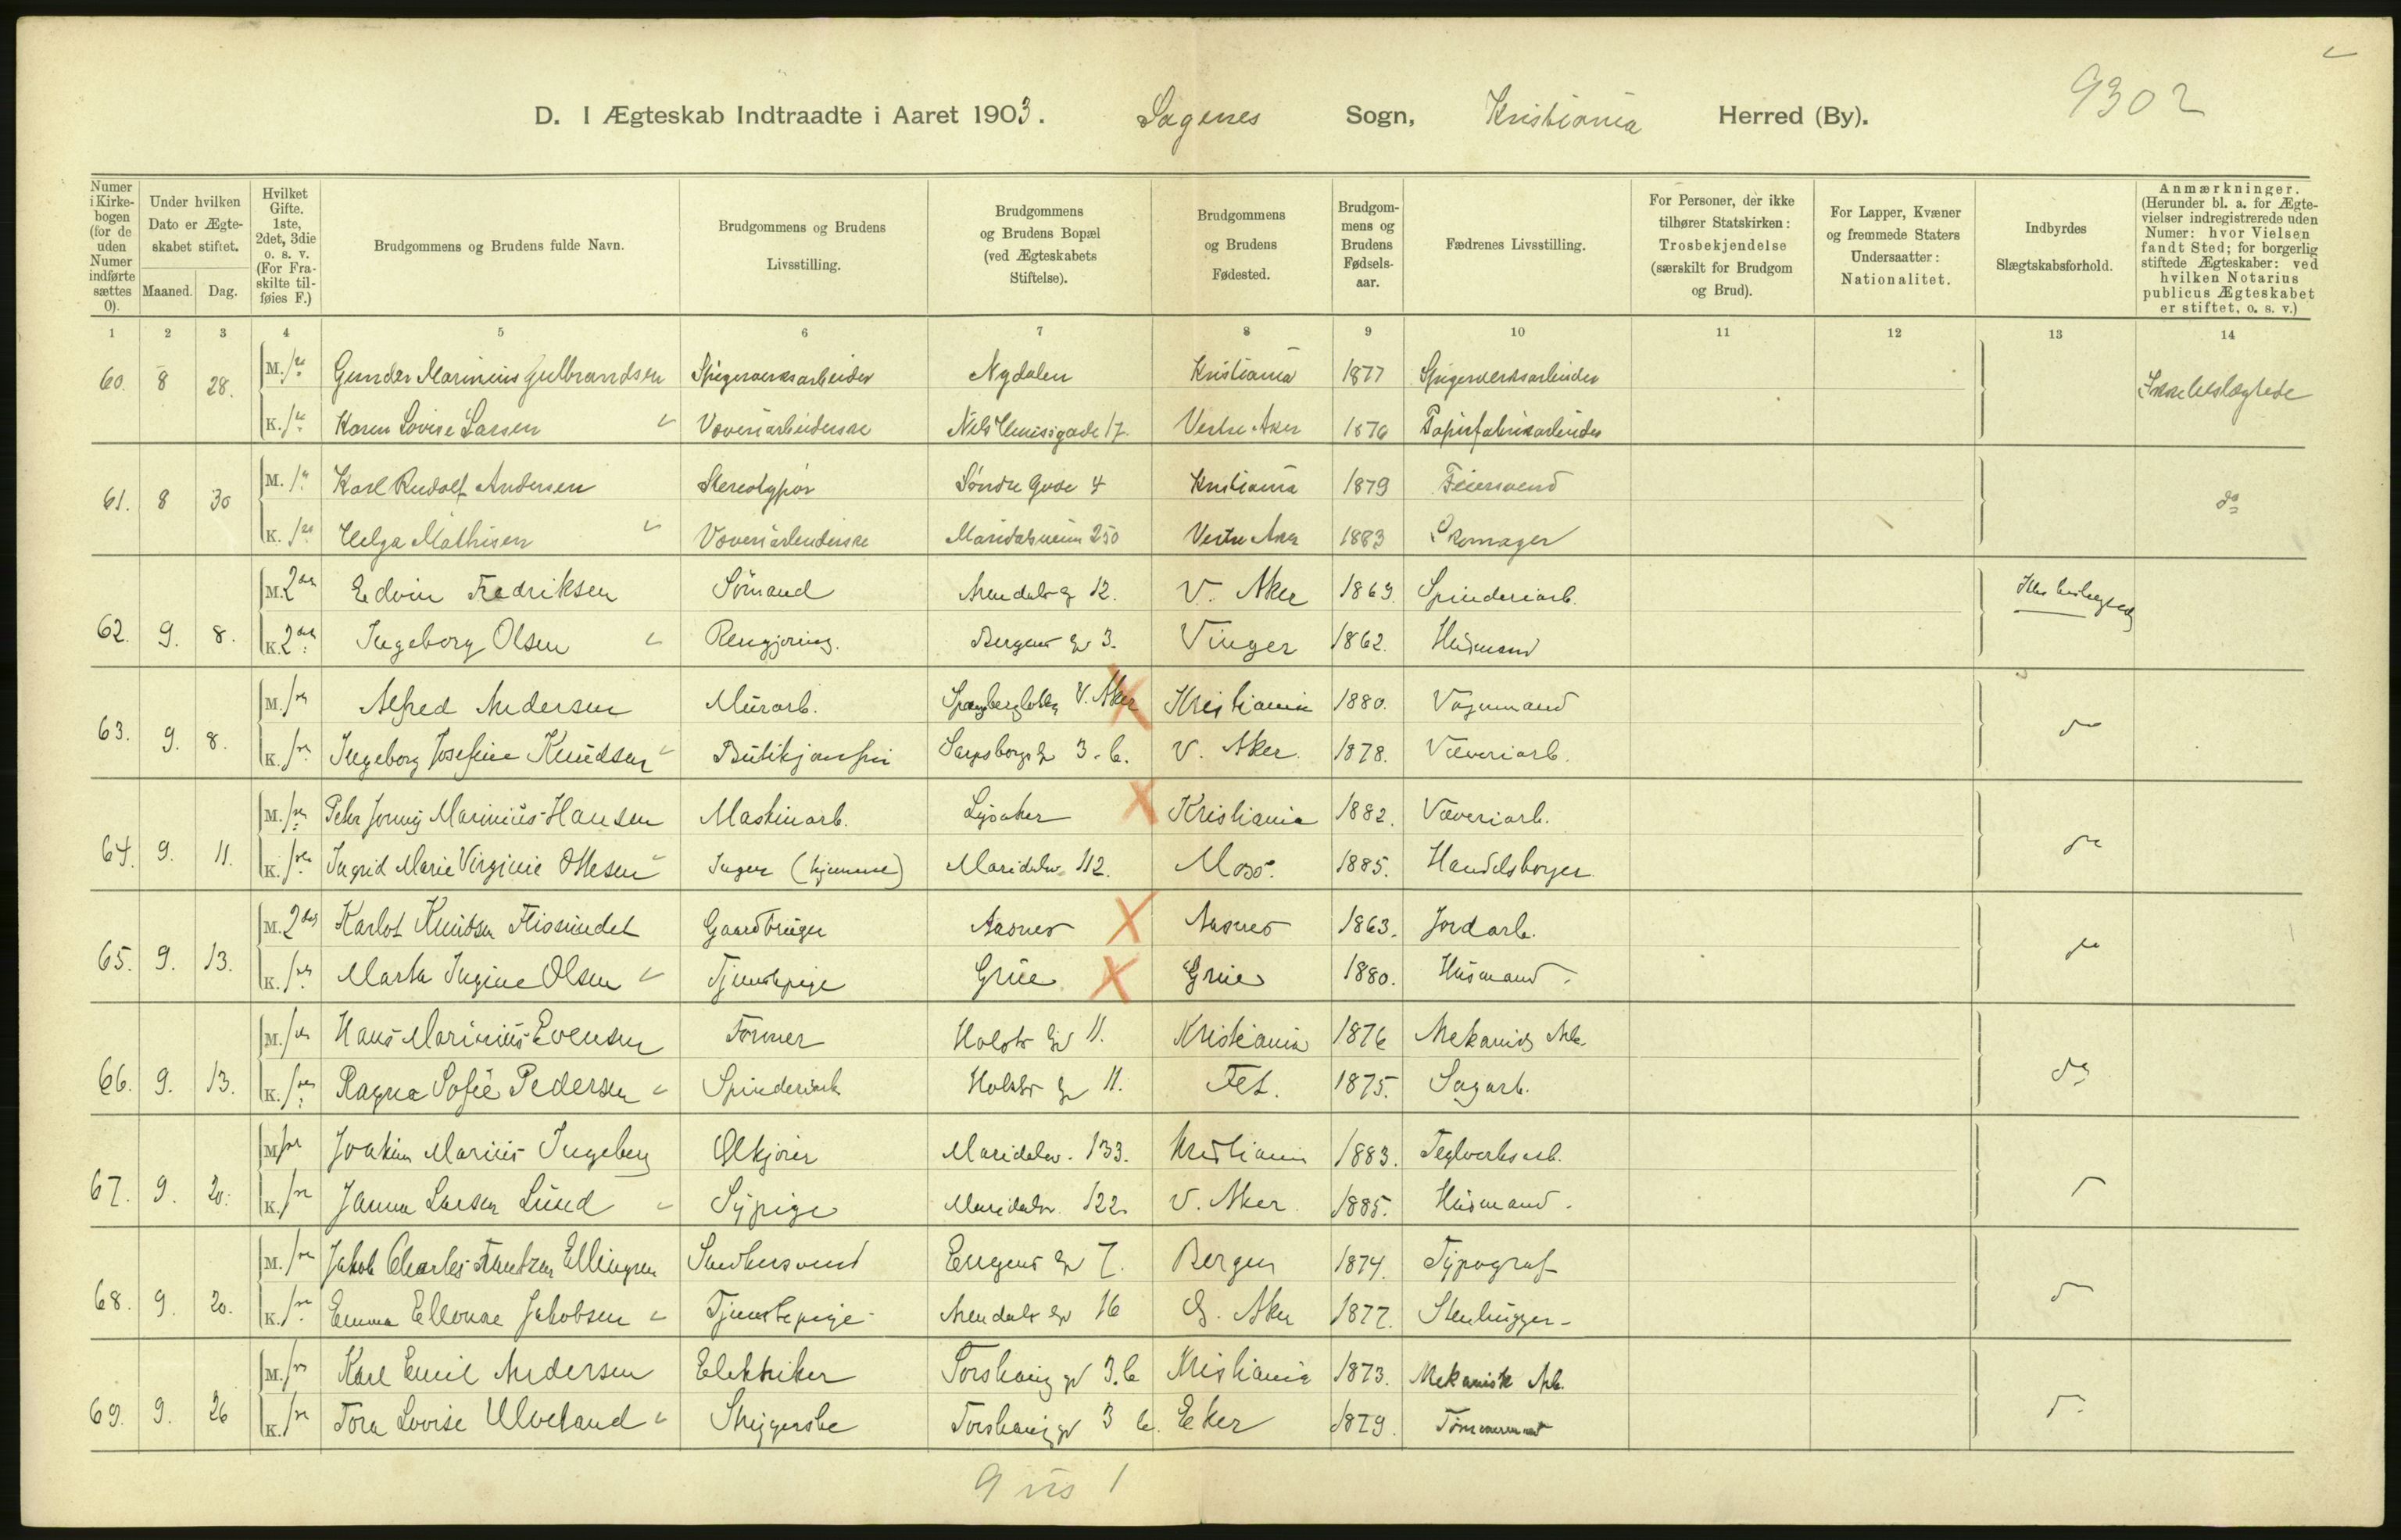 9302
D. I Ægteskab Indtraadte i Aaret 1903. Sagenes Sogn, Kristiania Herred (By).
Numer i Kirkebogen (for de uden Numer indførte sættes 0). Under hvilken Dato er Ægteskabet stiftet. Maaned. Dag. Hvilket Gifte. 1ste, 2det, 3die o. s. v. (For Fraskilte tilføies F.) Brudgommens og Brudens fulde Navn. Brudgommens og Brudens Livsstilling. Brudgommens og Brudens Bopæl (ved Ægteskabets Stiftelse). Brudgommens og Brudens Fødested. Brudgommens og Brudens Fødselsaar. Fædrenes Livsstilling. For Personer, der ikke tilhører Statskirken: Trosbekjendelse (særskilt for Brudgom og Brud). For Lapper, Kvæner og fremmede Staters Undersaatter: Nationalitet. Indbyrdes Slægtskabsforhold. Anmærkninger. (Herunder bl. a. for Ægtevielser indregistrerede uden Numer: hvor Vielsen fandt Sted; for borgerlig stiftede Ægteskaber: ved hvilken Notarius publicus Ægteskabet er stiftet, o. s. v.)
1 2 3 4 5 6 7 8 9 10 11 12 13 14
60. 8 28. M. Gunder Marinius Gulbrandsen Spigerverksarbeider Nydalen Kristiania 1877 Spigerverksarbeider Ikke beslægtede
K. Karen Lovise Larsen Væveriarbeiderske 17. Vestre Aker 1876 Papirfabrikarbeider
61. 8 30 M. Karl Rudolf Andersen Stereotypør Søndre Gade 4 Kristiania 1879 Feiersvend do
K. Helga Mathisen Væveriarbeiderske Maridalsveien 250 Vestre Aker 1883 Skomager
62. 9. 8. M. 2den Edvin Fredriksen Sømand Arendalsg 12. V. Aker 1869. Spinderiarb. Ikke beslægtede
K. 2den Ingeborg Olsen Rengjøring. Bergens g 3. Vinger 1862. Husmand
63. 9. 8. M. Alfred Andersen Murarb. V. Aker Kristiania 1880. Vognmand
K. Ingeborg Josefine Knudsen Butikjomfru Sarpsborgs g 3. b. V. Aker. 1878. Væveriarb.
64. 9. 11. M. Peter Jonny Marinius Hansen Maskinarb. Lysaker Kristiania 1882. Væveriarb.
K. Ingrid Marie Virginie Ottesen Ingen (hjemme) Maridalsv. 112. Moss. 1885. Handelsborger
65. 9. 13. M. 2den Karlot Knudsen Flisundet Gaardbruger Aasnes Aasnes 1863. Jordarb.
K. Marta Ingine Olsen Tjenestepige Grue Grue 1880. Husmand.
66. 9. 13. M. Hans Marinius Evensen Former Holsts g 11. Kristiania 1876 Mekanisk Arb. do
K. Ragna Sofie Pedersen Spinderiarb Holsts g 11. Fet. 1875. Sagarb.
67. 9. 20. M. Joakim Marius Ingeberg Ølkjører Maridalsv. 133. Kristiania 1883. Teglverksarb.
K. Janna Larsen Lund Sypige Maridalsv. 122. V. Aker. 1885. Husmand.
68. 9. 20. M. Jakob Charles Frantzen Ellingsen Snedkersvend Eugens g 7. Bergen 1874. Typograf
K. Emma Ellonæ Jakobsen Tjenestepige Arendals g 16 Ø. Aker 1877. Stenhugger
69. 9. 26 M. Karl Emil Andersen Elektriker Torshaug g 3. b Kristiania 1873. Mekanisk Arb.
K. Tora Lovise Ulveland Strygerske Torshaug g 3 b. Eker 1879. Tømmermand